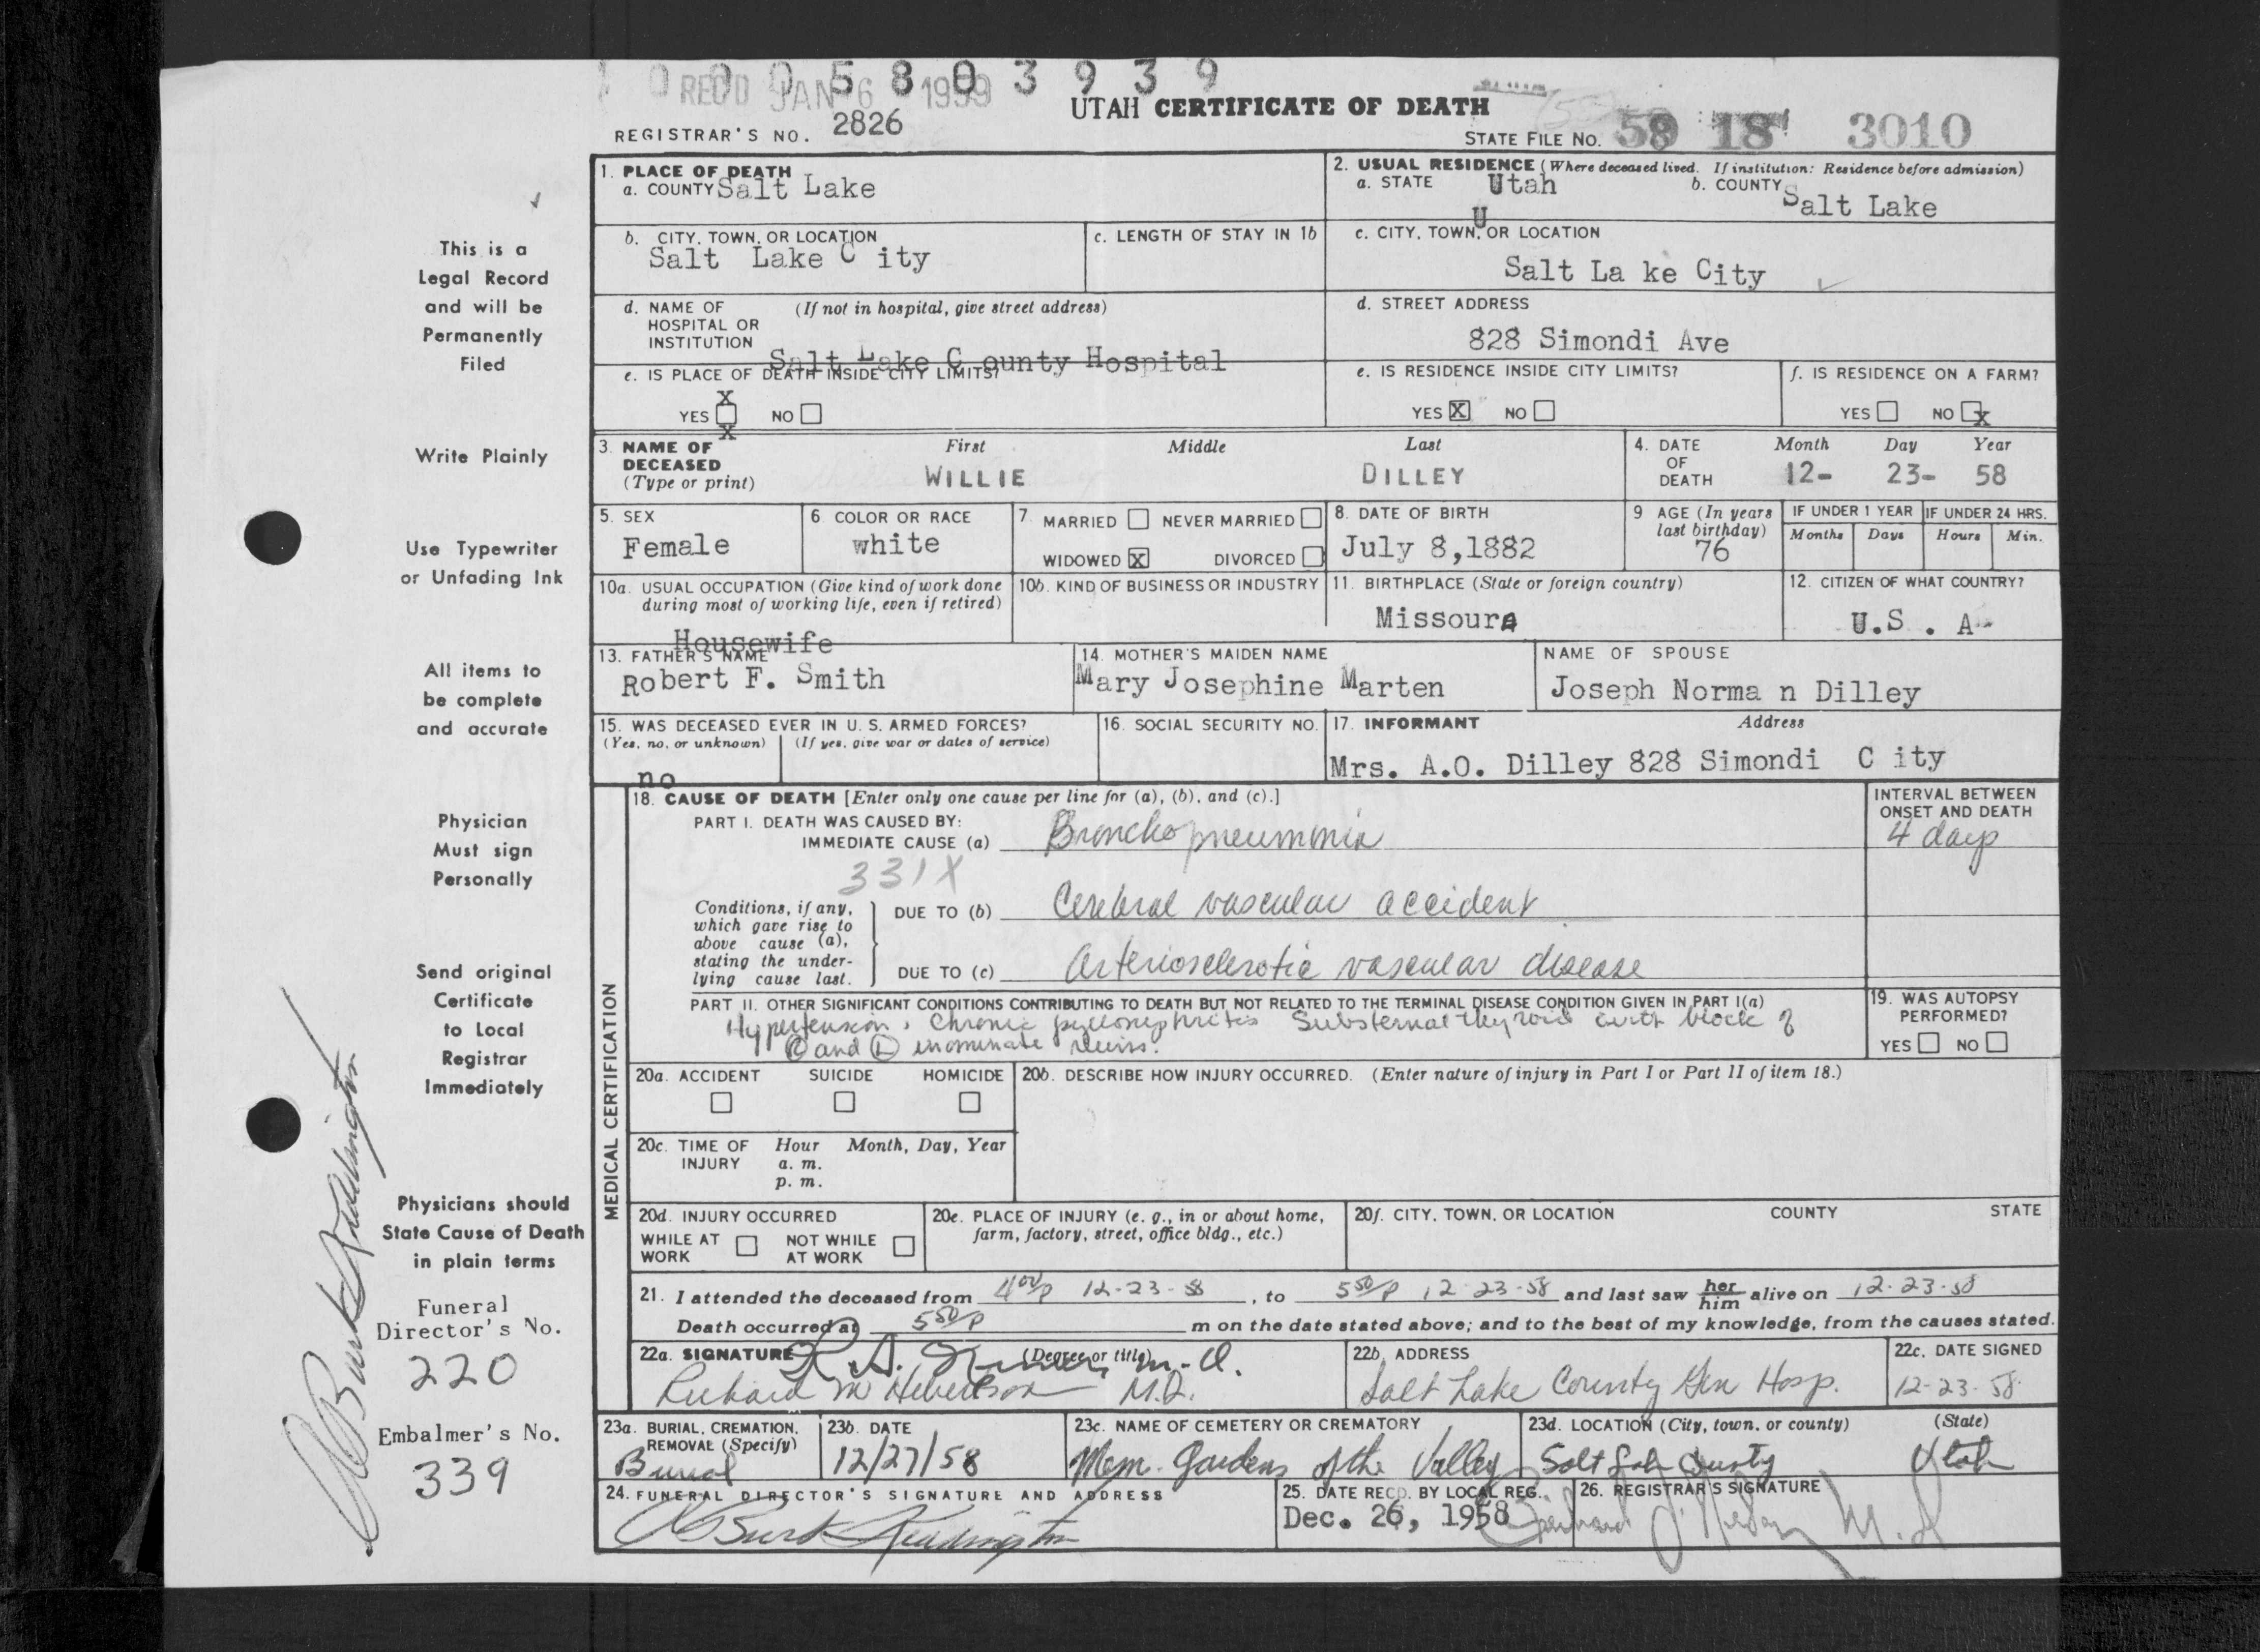 1 0 0 0 5 8 0 3 9 3 9
REC'D JAN 6 1959
UTAH CERTIFICATE OF DEATH
REGISTRAR'S NO. 2826
STATE FILE No. 58 18 3010
1. PLACE OF DEATH
a. COUNTY Salt Lake
2. USUAL RESIDENCE (Where deceased lived. If institution: Residence before admission)
a. STATE Utah b. COUNTY Salt Lake
U
b. CITY, TOWN, OR LOCATION
Salt Lake C ity
c. LENGTH OF STAY IN 1b
c. CITY, TOWN, OR LOCATION
Salt La ke City
d. NAME OF HOSPITAL OR INSTITUTION (If not in hospital, give street address)
Salt Lake C ounty Hospital
d. STREET ADDRESS
828 Simondi Ave
e. IS PLACE OF DEATH INSIDE CITY LIMITS?
X
YES NO
X
e. IS RESIDENCE INSIDE CITY LIMITS?
YES X NO
f. IS RESIDENCE ON A FARM?
YES NO X
3. NAME OF DECEASED (Type or print)
First Middle Last
WILLIE DILLEY
4. DATE OF DEATH
Month Day Year
12- 23- 58
5. SEX
Female
6. COLOR OR RACE
white
7. MARRIED NEVER MARRIED
WIDOWED X DIVORCED
8. DATE OF BIRTH
July 8,1882
9 AGE (In years last birthday)
76
IF UNDER 1 YEAR
Months Days
IF UNDER 24 HRS.
Hours Min.
10a. USUAL OCCUPATION (Give kind of work done during most of working life, even if retired)
Housewife
10b. KIND OF BUSINESS OR INDUSTRY
11. BIRTHPLACE (State or foreign country)
Missouri
12. CITIZEN OF WHAT COUNTRY?
U.S . A-
13. FATHER'S NAME
Robert F. Smith
14. MOTHER'S MAIDEN NAME
Mary Josephine Marten
NAME OF SPOUSE
Joseph Norma n Dilley
15. WAS DECEASED EVER IN U. S. ARMED FORCES?
(Yes, no, or unknown) (If yes, give war or dates of service)
no
16. SOCIAL SECURITY NO.
17. INFORMANT Address
Mrs. A.O. Dilley 828 Simondi C ity
MEDICAL CERTIFICATION
18. CAUSE OF DEATH [Enter only one cause per line for (a), (b), and (c).]
INTERVAL BETWEEN ONSET AND DEATH
PART I. DEATH WAS CAUSED BY:
IMMEDIATE CAUSE (a) Bronchopneumonia 4 days
331X
Conditions, if any, which gave rise to above cause (a), stating the underlying cause last.
DUE TO (b) Cerebral vascular accident
DUE TO (c) Arteriosclerotic vascular disease
PART II. OTHER SIGNIFICANT CONDITIONS CONTRIBUTING TO DEATH BUT NOT RELATED TO THE TERMINAL DISEASE CONDITION GIVEN IN PART I(a)
Hypertension, Chronic pyelonephritis Substernal thyroid with block of
R and L innominate veins.
19. WAS AUTOPSY PERFORMED?
YES NO
20a. ACCIDENT SUICIDE HOMICIDE
20b. DESCRIBE HOW INJURY OCCURRED. (Enter nature of injury in Part I or Part II of item 18.)
20c. TIME OF INJURY Hour Month, Day, Year
a. m.
p. m.
20d. INJURY OCCURRED
WHILE AT WORK NOT WHILE AT WORK
20e. PLACE OF INJURY (e. g., in or about home, farm, factory, street, office bldg., etc.)
20f. CITY, TOWN, OR LOCATION COUNTY STATE
21. I attended the deceased from 4 00 p 12-23-58, to 5 50 p 12-23-58 and last saw her/him alive on 12-23-58
Death occurred at 5 50 p m on the date stated above; and to the best of my knowledge, from the causes stated.
22a. SIGNATURE (Degree or title) M.D.
Richard M Hebertson M.D.
22b. ADDRESS
Salt Lake County Gen Hosp.
22c. DATE SIGNED
12-23-58
23a. BURIAL, CREMATION, REMOVAL (Specify)
Burial
23b. DATE
12/27/58
23c. NAME OF CEMETERY OR CREMATORY
Mem. Gardens of the Valley
23d. LOCATION (City, town, or county) (State)
Salt Lake County Utah
24. FUNERAL DIRECTOR'S SIGNATURE AND ADDRESS
25. DATE RECD. BY LOCAL REG.
Dec. 26, 1958
26. REGISTRAR'S SIGNATURE
M.D.
This is a
Legal Record
and will be
Permanently
Filed
Write Plainly
Use Typewriter
or Unfading Ink
All items to
be complete
and accurate
Physician
Must sign
Personally
Send original
Certificate
to Local
Registrar
Immediately
Physicians should
State Cause of Death
in plain terms
Funeral
Director's No.
220
Embalmer's No.
339